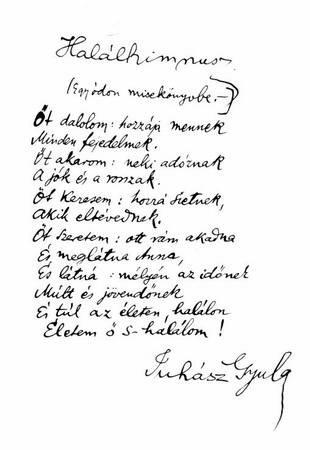 Halálhimnus.
(Egy ódon misekönyvbe.)
Őt dalolom: hozzája mennek
Minden fejedelmek.
Őt akarom: neki adóznak
A jók és a rosszak.
Őt keresem: hozzá sietnek,
Akik eltévednek.
Őt szeretem: ott rám akadna
És meglátna Anna,
És látná: mélyén az időnek
Múlt és jövendőnek
És túl az életen, halálon
Életem ő s-halálom!
Juhász Gyula